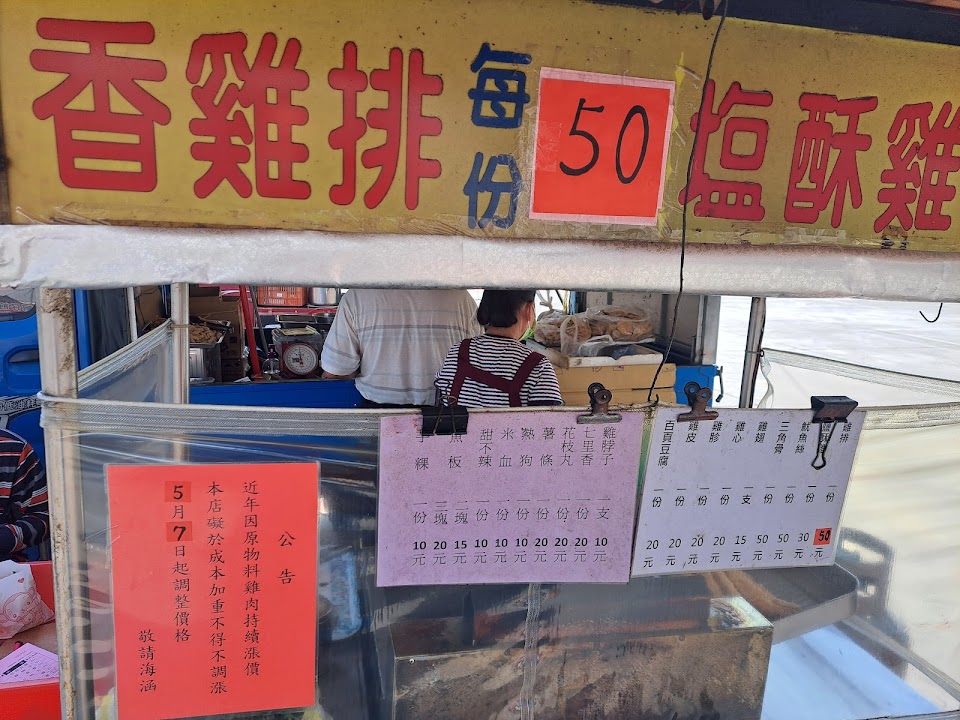 香雞排 每份 50 塩酥雞
公告
近年因原物料雞肉持續漲價
本店礙於成本加重不得不調漲
5月7日起調整價格
敬請海涵
雞脖子 一支 10元
七里香 一份 20元
花枝丸 一份 20元
薯條 一份 20元
熱狗 一份 10元
米血 一份 10元
甜不辣 一份 10元
魚板 一塊 15元
三塊 20元
粿 一份 10元
雞排 一份 50元
鹽酥雞 一份 30元
魷魚絲 一份 50元
三角骨 一份 50元
雞翅 一支 15元
雞心 一份 20元
雞胗 一份 20元
雞皮 一份 20元
百頁豆腐 一份 20元